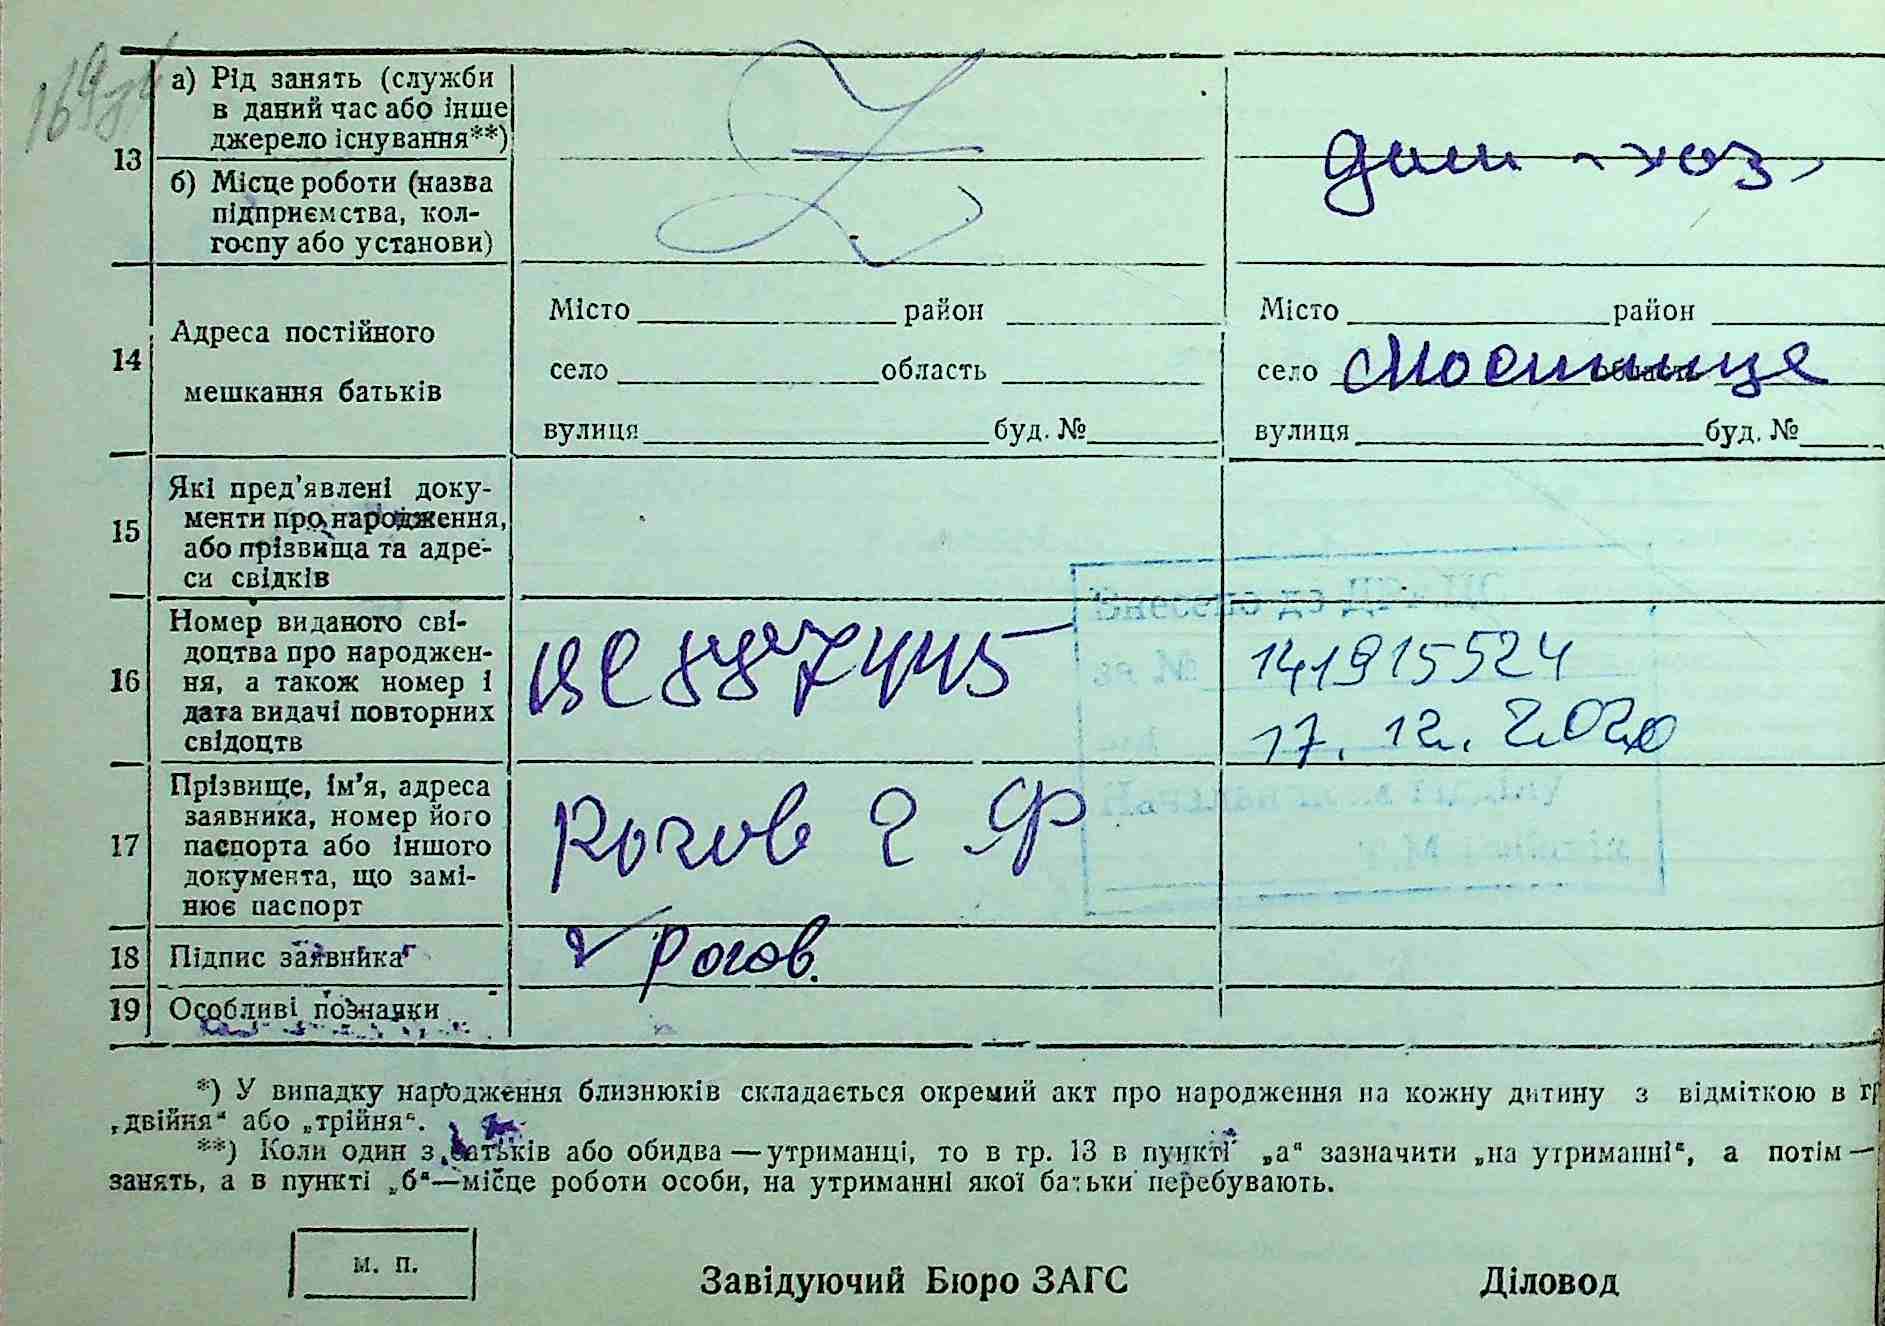 а) Рід занять (служби
в даний час або інше
джерело існування**)
13
дом - хоз.
б) Місце роботи (назва
підприємства, кол-
госпу або установи)
Місто район Місто район
14 Адреса постійного
мешкання батьків
село область село Мостище область
вулиця буд. № вулиця буд. №
15 Які пред'явлені доку-
менти про народження,
або прізвища та адре-
си свідків
Внесено до ДРАЦС
16 Номер виданого сві-
доцтва про народжен-
ня, а також номер і
дата видачі повторних
свідоцтв
за № 141915524
від 17. 12. 2020
Начальник відділу
17 Прізвище, ім'я, адреса
заявника, номер його
паспорта або іншого
документа, що замі-
нює паспорт
Рогов Г Ф
18 Підпис заявника Рогов.
19 Особливі познаки
*) У випадку народження близнюків складається окремий акт про народження на кожну дитину з відміткою в гр
„двійня“ або „трійня“.
**) Коли один з батьків або обидва — утриманці, то в гр. 13 в пункті „а“ зазначити „на утриманні“, а потім —
занять, а в пункті „б“—місце роботи особи, на утриманні якої батьки перебувають.
м. п.
Завідуючий Бюро ЗАГС Діловод